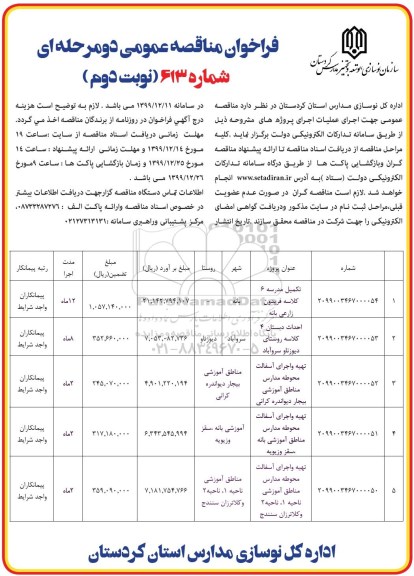 فراخوان مناقصه عمومی دومرحله ای
شماره ۶۱۳ (نوبت دوم )
سازمان نوسازی، توسعه و تجهیز مدارس کردستان
اداره کل نوسازی مدارس استان کردستان در نظر دارد مناقصه
عمومی جهت اجرای عملیات اجرای پروژه های مشروحه ذیل
از طریق سامانه تدارکات الکترونیکی دولت برگزار نماید. کلیه
مراحل مناقصه از دریافت اسناد مناقصه تا ارائه پیشنهاد مناقصه
گران وبازگشایی پاکت ها از طریق درگاه سامانه تدارکات
الکترونیکی دولت (ستاد )به آدرس www.setadiran.ir انجام
خواهد شد .لازم است مناقصه گران در صورت عدم عضویت
قبلی،مراحل ثبت نام در سایت مذکور ودریافت گواهی امضای
الکترونیکی را جهت شرکت در مناقصه محقق سازند .تاریخ انتشار
در سامانه ۱۳۹۹/۱۲/۱۱ می باشد . لازم به توضیح است هزینه
درج آگهی فراخوان در روزنامه از برندگان مناقصه اخذ می گردد.
مهلت زمانی دریافت اسناد مناقصه از سایت :ساعت ۱۹
مورخ ۱۳۹۹/۱۲/۱۴ و مهلت زمانی ارائه پیشنهاد : ساعت ۱۴
مورخ ۱۳۹۹/۱۲/۲۵ و زمان بازگشایی پاکت ها : ساعت ۹ مورخ
۱۳۹۹/۱۲/۲۶ می باشد .
اطلاعات تماس دستگاه مناقصه گزارجهت دریافت اطلاعات بیشتر
در خصوص اسناد مناقصه وارائه پاکت الف : ۰۸۷۳۳۲۸۷۲۷۶،
مرکز پشتیبانی وراهبری سامانه :۰۲۱۲۷۳۱۳۱۳۱
شماره عنوان پروژه شهر روستا مبلغ بر آورد (ریال) مبلغ تضمین(ریال) مدت اجرا رتبه پیمانکار
۱ ۲۰۹۹۰۰۳۴۶۷۰۰۰۰۵۴ تکمیل مدرسه ۶ کلاسه فریدون زارعی بانه بانه ۲۱,۱۴۲,۷۹۴,۱۰۷ ۱,۰۵۷,۱۴۰,۰۰۰ ۱۲ماه پیمانکاران واجد شرایط
۲ ۲۰۹۹۰۰۳۴۶۷۰۰۰۰۵۳ احداث دبستان ۴ کلاسه روستای دیوزناو سروآباد سروآباد دیوزناو ۷,۰۵۳,۰۸۲,۷۳۶ ۳۵۲,۶۶۰,۰۰۰ ۸ماه پیمانکاران واجد شرایط
۳ ۲۰۹۹۰۰۳۴۶۷۰۰۰۰۵۲ تهیه واجرای آسفالت محوطه مدارس مناطق آموزشی بیجار دیواندره کرانی مناطق آموزشی بیجار دیواندره کرانی ۴,۹۰۱,۲۲۰,۱۹۴ ۲۴۵,۰۷۰,۰۰۰ ۲ماه پیمانکاران واجد شرایط
۴ ۲۰۹۹۰۰۳۴۶۷۰۰۰۰۵۱ تهیه واجرای آسفالت محوطه مدارس مناطق آموزشی بانه ،سقز وزیویه آموزشی بانه ،سقز وزیویه ۶,۳۴۳,۵۴۵,۹۹۴ ۳۱۷,۱۸۰,۰۰۰ ۲ماه پیمانکاران واجد شرایط
۵ ۲۰۹۹۰۰۳۴۶۷۰۰۰۰۵۰ تهیه واجرای آسفالت محوطه مدارس مناطق آموزشی ناحیه ۱، ناحیه۲ وکلاترزان سنندج مناطق آموزشی ناحیه ۱، ناحیه۲ وکلاترزان سنندج ۷,۱۸۱,۷۵۴,۷۶۶ ۳۵۹,۰۹۰,۰۰۰ ۲ماه پیمانکاران واجد شرایط
۰۲۱-۸۸۳۴۹۶۷۰-۵
اداره کل نوسازی مدارس استان کردستان